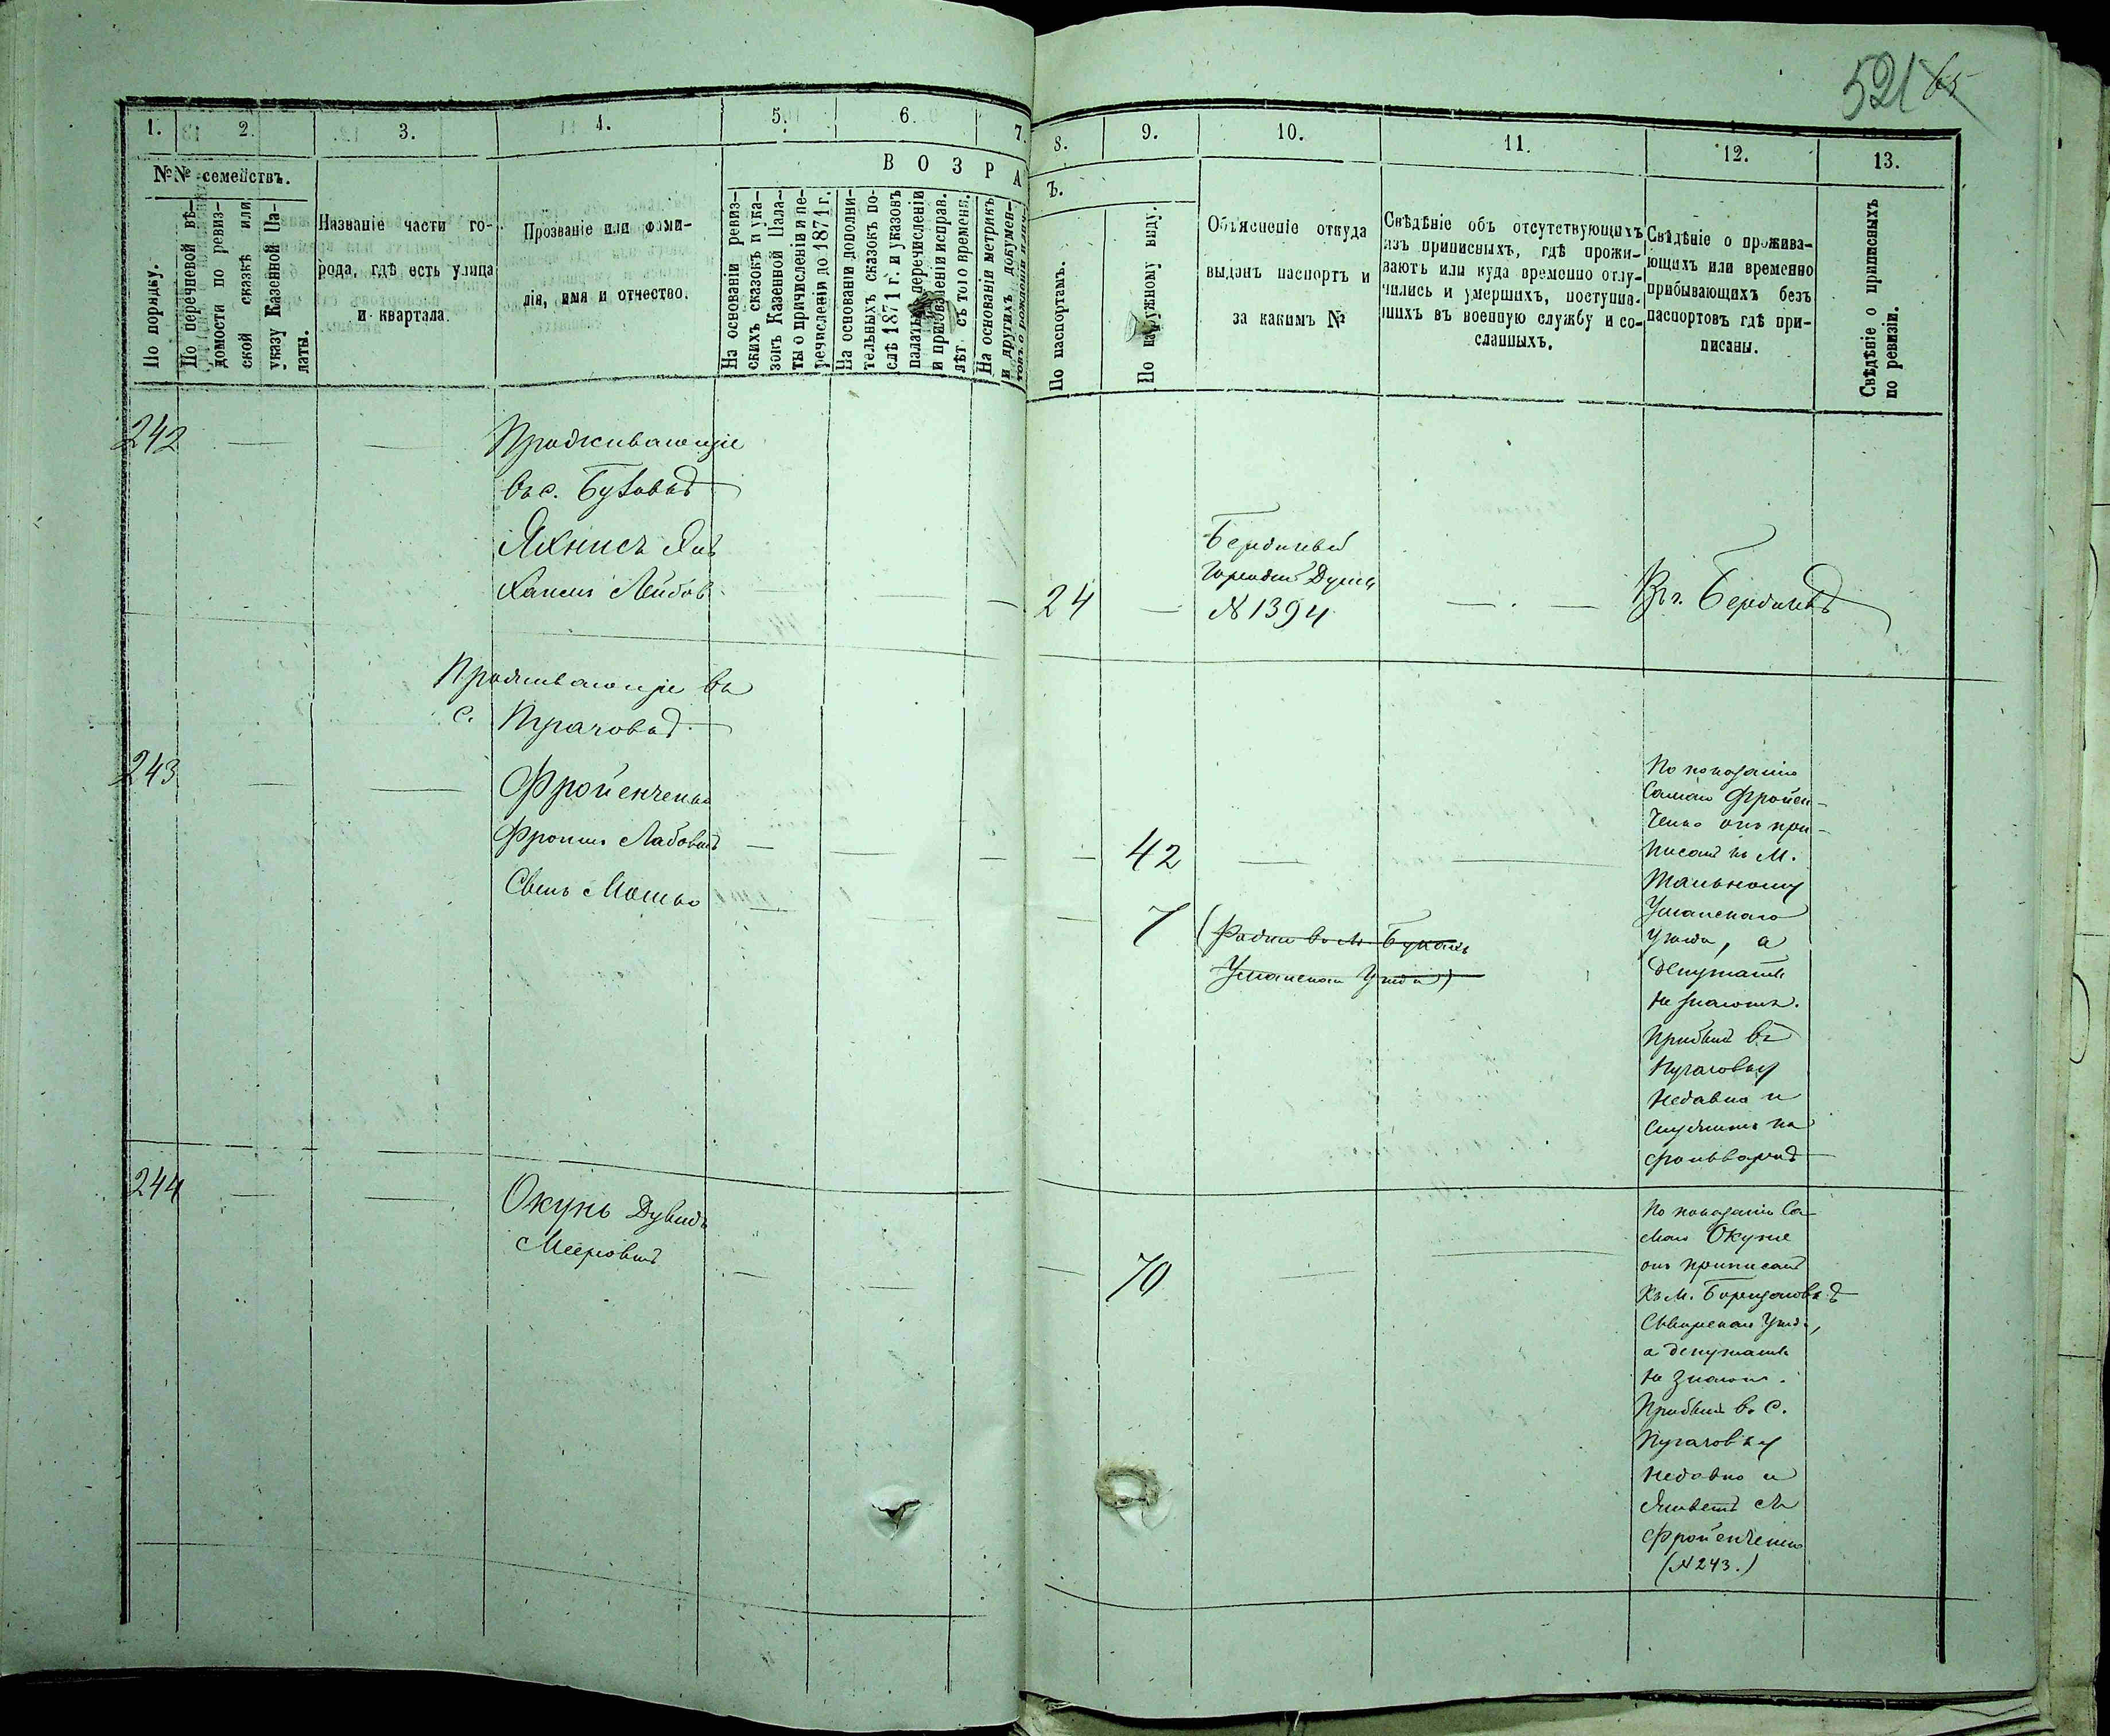 521 65
1. 2. 3. 4. 5. 6. 7.
8. 9. 10. 11. 12. 13.
№№ семействъ.
По порядку.
По перечневой вѣ-
домости по ревиз-
ской сказкѣ или
указу Казенной Па-
латы.
Названіе части го-
рода, гдѣ есть улица
и квартала.
Прозваніе или фами-
лія, имя и отчество.
В О З Р А
На основаніи ревиз-
скихъ сказокъ и ука-
зокъ Казенной Пала-
ты о причисленіи и пе-
речисленіи до 1871 г.
На основаніи дополни-
тельныхъ сказокъ по-
слѣ 1871 г. и указовъ
палаты перечисленіи
и прибавленіи исправ.
лѣт съ того времени.
На основаніи метрикъ
и другихъ докумен-
Ъ.
По паспортамъ.
По наружному виду.
Объясненіе откуда
выданъ паспортъ и
за какимъ №
Свѣдѣніе объ отсутствующихъ
изъ приписныхъ, гдѣ прожи-
вають или куда временно отлу-
чились и умершихъ, поступив-
шихъ въ военную службу и со-
сланныхъ.
Свѣдѣніе о прожива-
ющихъ или временно
прибывающихъ безъ
паспортовъ гдѣ при-
писаны.
Свѣдѣніе о приписныхъ
по ревизіи.
242 — — Проживающіе
въ с.
Яхнисъ
Лейбов. — — — 24 —
Бердичевской
Городской Думы
№ 1394
— · — Въ г. Бердичевѣ
Проживающіе въ
с. Пугачовкѣ
243 — — Фройенченко
Фроимъ Лабовичъ — — — — 42 — —
Сынъ Мошко — — — 7
(Родился въ м. Букахъ
Уманскаго Уѣзда)
По показанію
самаго Фройен-
ченко онъ при-
писанъ къ м.
Тальному
Уманскаго
Уѣзда, а
депутаты
не знаютъ.
Прибылъ въ
Пугачовку
недавно и
служитъ на
фольваркѣ
244 — — Окунь Дувидъ
Мееровичъ — — — 70 — —
По показанію са-
маго Окуня
онъ приписанъ
къ м.
Сквирскаго Уѣзда,
а депутаты
не знаютъ.
Прибылъ въ с.
Пугачовку
недавно и
живетъ съ
Фройенченко
(№ 243.)